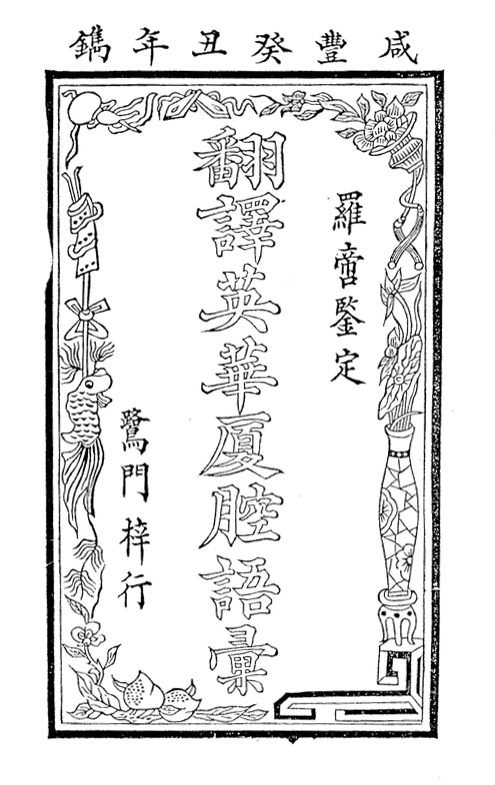 咸豐癸丑年鐫
羅啻鑒定
翻譯英華厦腔語彙
鷺門梓行